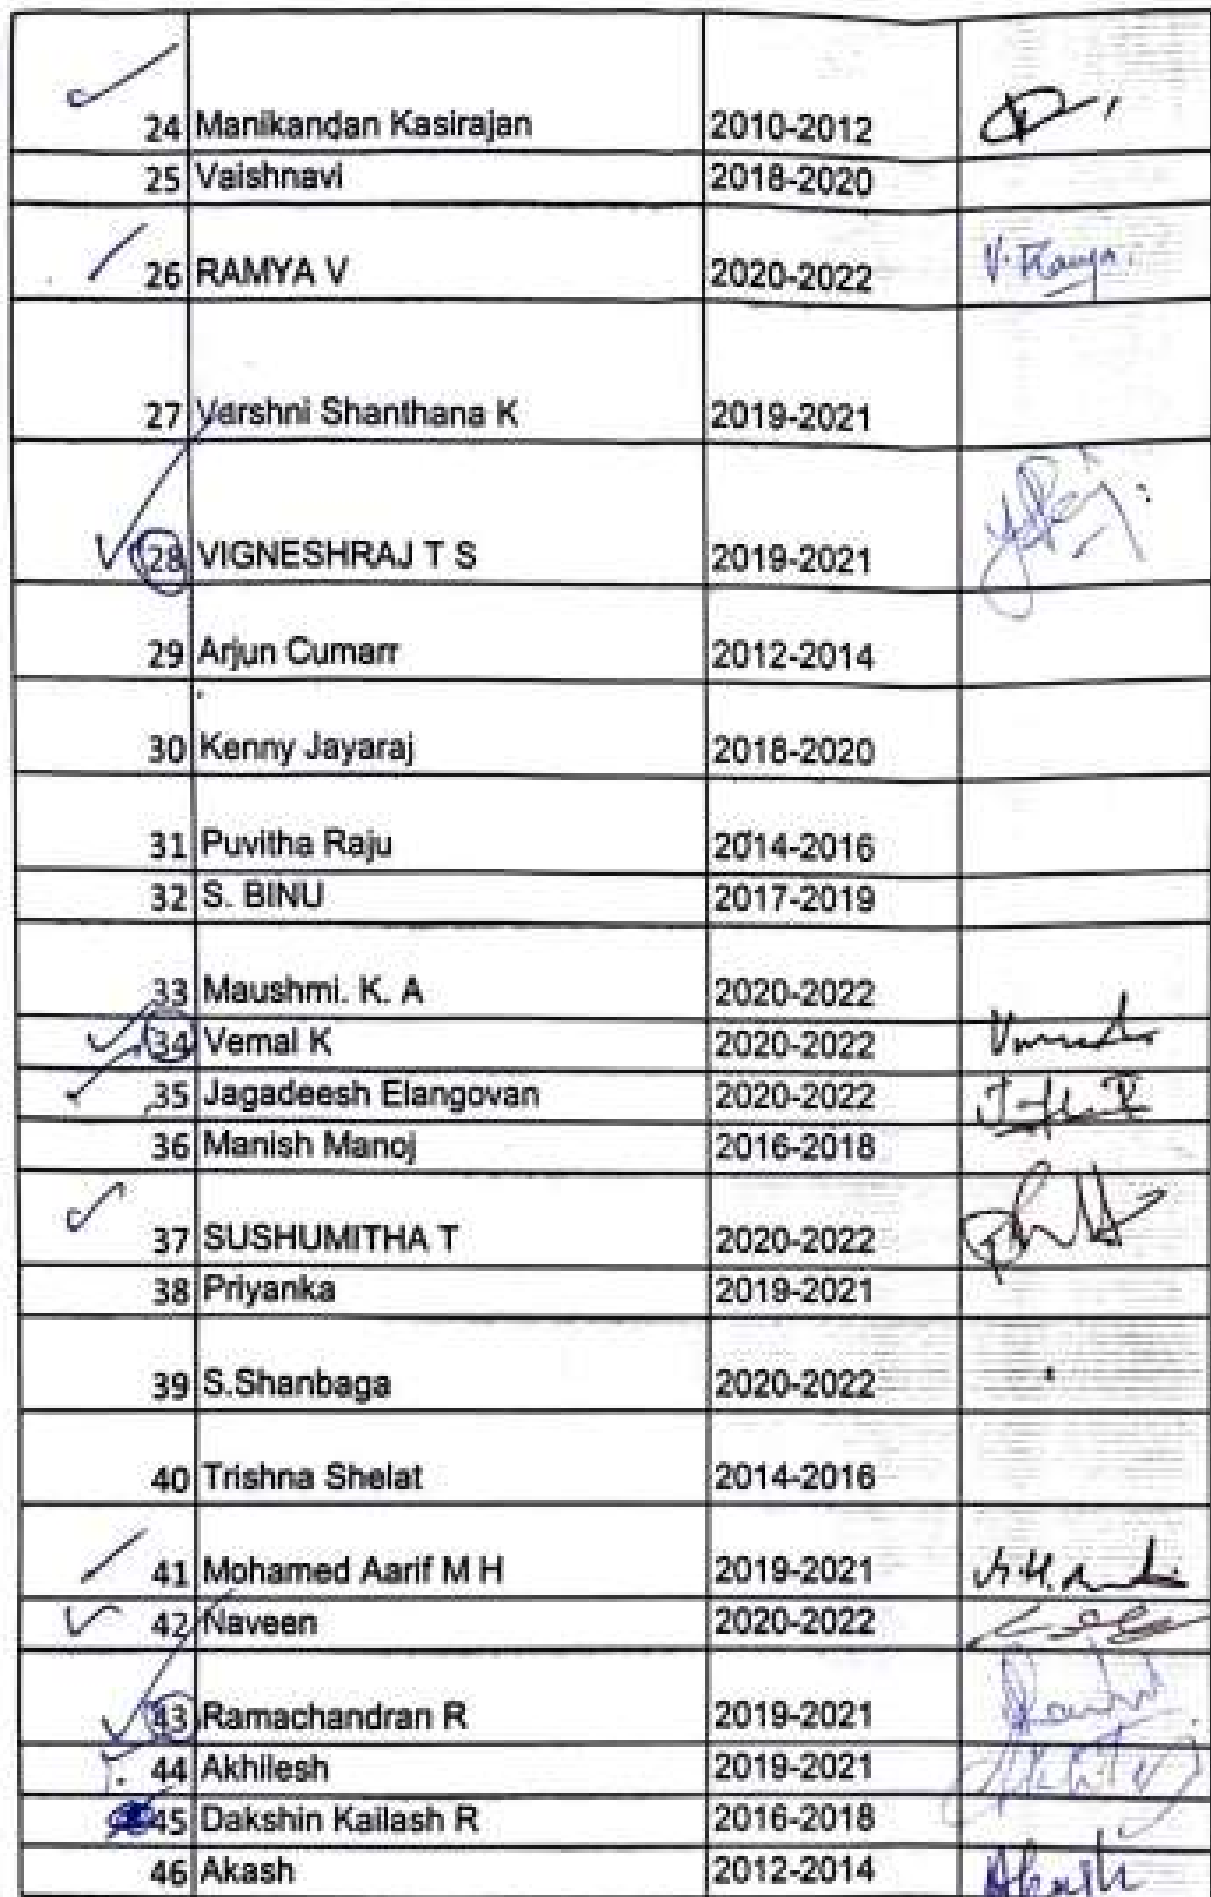 24 Manikandan Kasirajan 2010-2012
25 Vaishnavi 2018-2020
26 RAMYA V 2020-2022 V. Ramya
27 Varshni Shanthana K 2019-2021
28 VIGNESHRAJ T S 2019-2021
29 Arjun Cumarr 2012-2014
30 Kenny Jayaraj 2018-2020
31 Puvitha Raju 2014-2016
32 S. BINU 2017-2019
33 Maushmi. K. A 2020-2022
34 Vemal K 2020-2022
35 Jagadeesh Elangovan 2020-2022
36 Manish Manoj 2016-2018
37 SUSHUMITHA T 2020-2022
38 Priyanka 2019-2021
39 S.Shanbaga 2020-2022
40 Trishna Shelat 2014-2016
41 Mohamed Aarif M H 2019-2021
42 Naveen 2020-2022
43 Ramachandran R 2019-2021
44 Akhilesh 2019-2021
45 Dakshin Kailash R 2016-2018
46 Akash 2012-2014 Akash